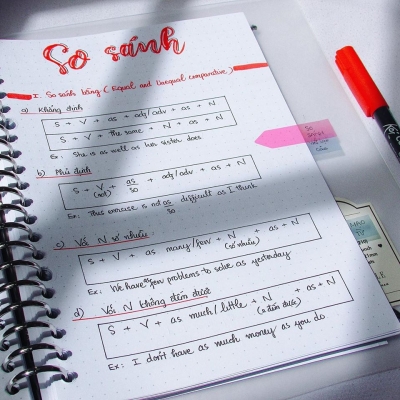 So sánh
I. So sánh bằng (Equal and Unequal comparative)
a) Khẳng định
S + V + as + adj/adv + as + N
S + V + the same + N + as + N
Ex: She is as well as her sister does
b) Phủ định
S + V + as + adj/adv + as + N
(not) so
Ex: This exercise is not as difficult as I think
so
c) Với N số nhiều
S + V + as many/few + N + as + N
(số nhiều)
Ex: We have as few problems to solve as yesterday
d) Với N không đếm được
S + V + as much/little + N + as + N
(k đếm được)
Ex: I don't have as much money as you do